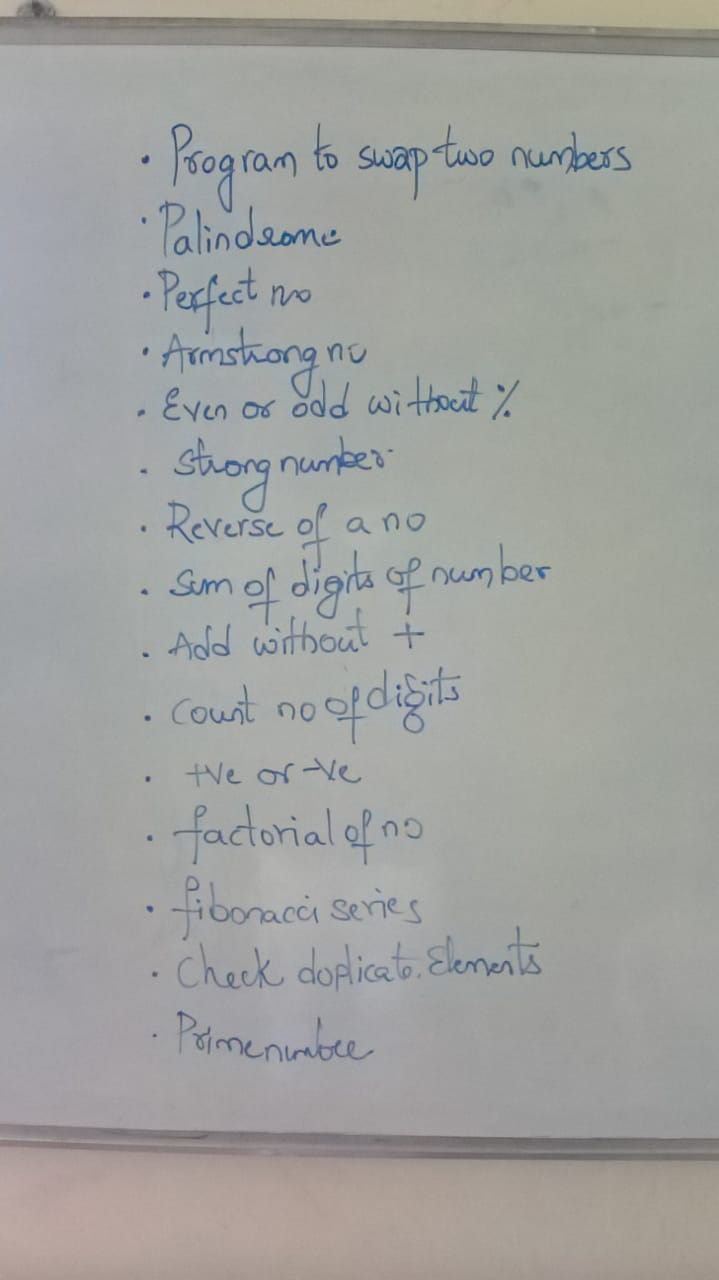 • Program to swap two numbers
• Palindrome
• Perfect no
• Armstrong no
• Even or odd without %
• Strong number
• Reverse of a no
• Sum of digits of number
• Add without +
• Count no of digits
• +ve or -ve
• factorial of no
• fibonacci series
• Check duplicate Elements
• Prime number